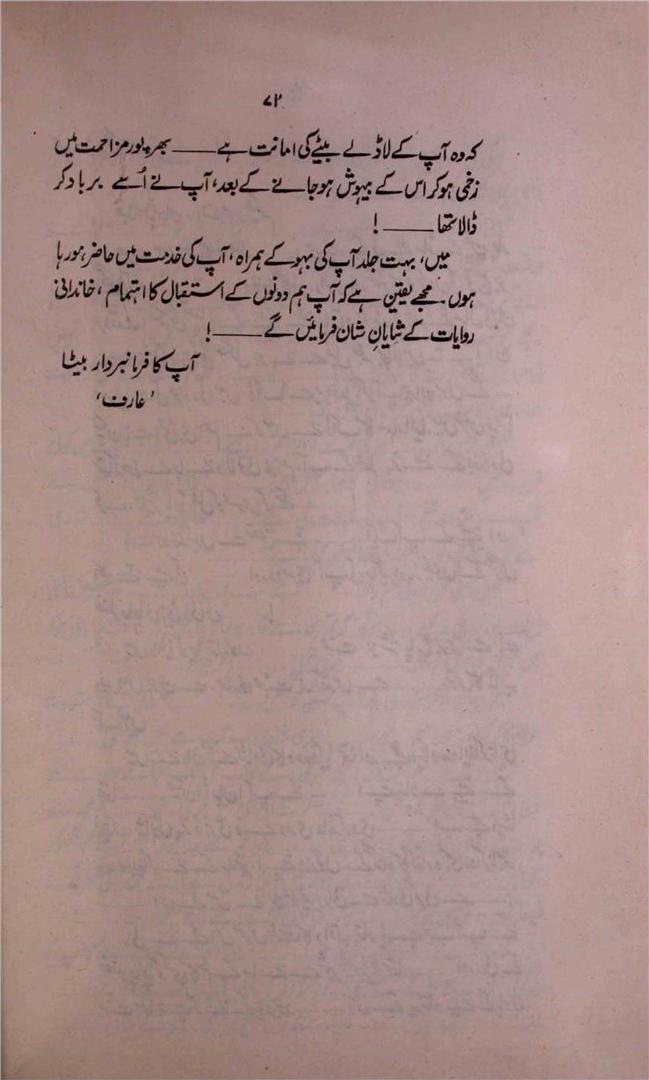 ۷۲
کہ وہ آپ کے لاڈلے بیٹے کی امانت ہے —— بھرپور مزاحمت میں
زخمی ہو کر اس کے بیہوش ہو جانے کے بعد، آپ نے اُسے برباد کر
ڈالا تھا —— !
میں، بہت جلد آپ کی بہو کے ہمراہ، آپ کی خدمت میں حاضر ہو رہا
ہوں۔ مجھے یقین ہے کہ آپ ہم دونوں کے استقبال کا اہتمام، خاندانی
روایات کے شایانِ شان فرمائیں گے —— !
آپ کا فرمانبردار بیٹا
'عارف'